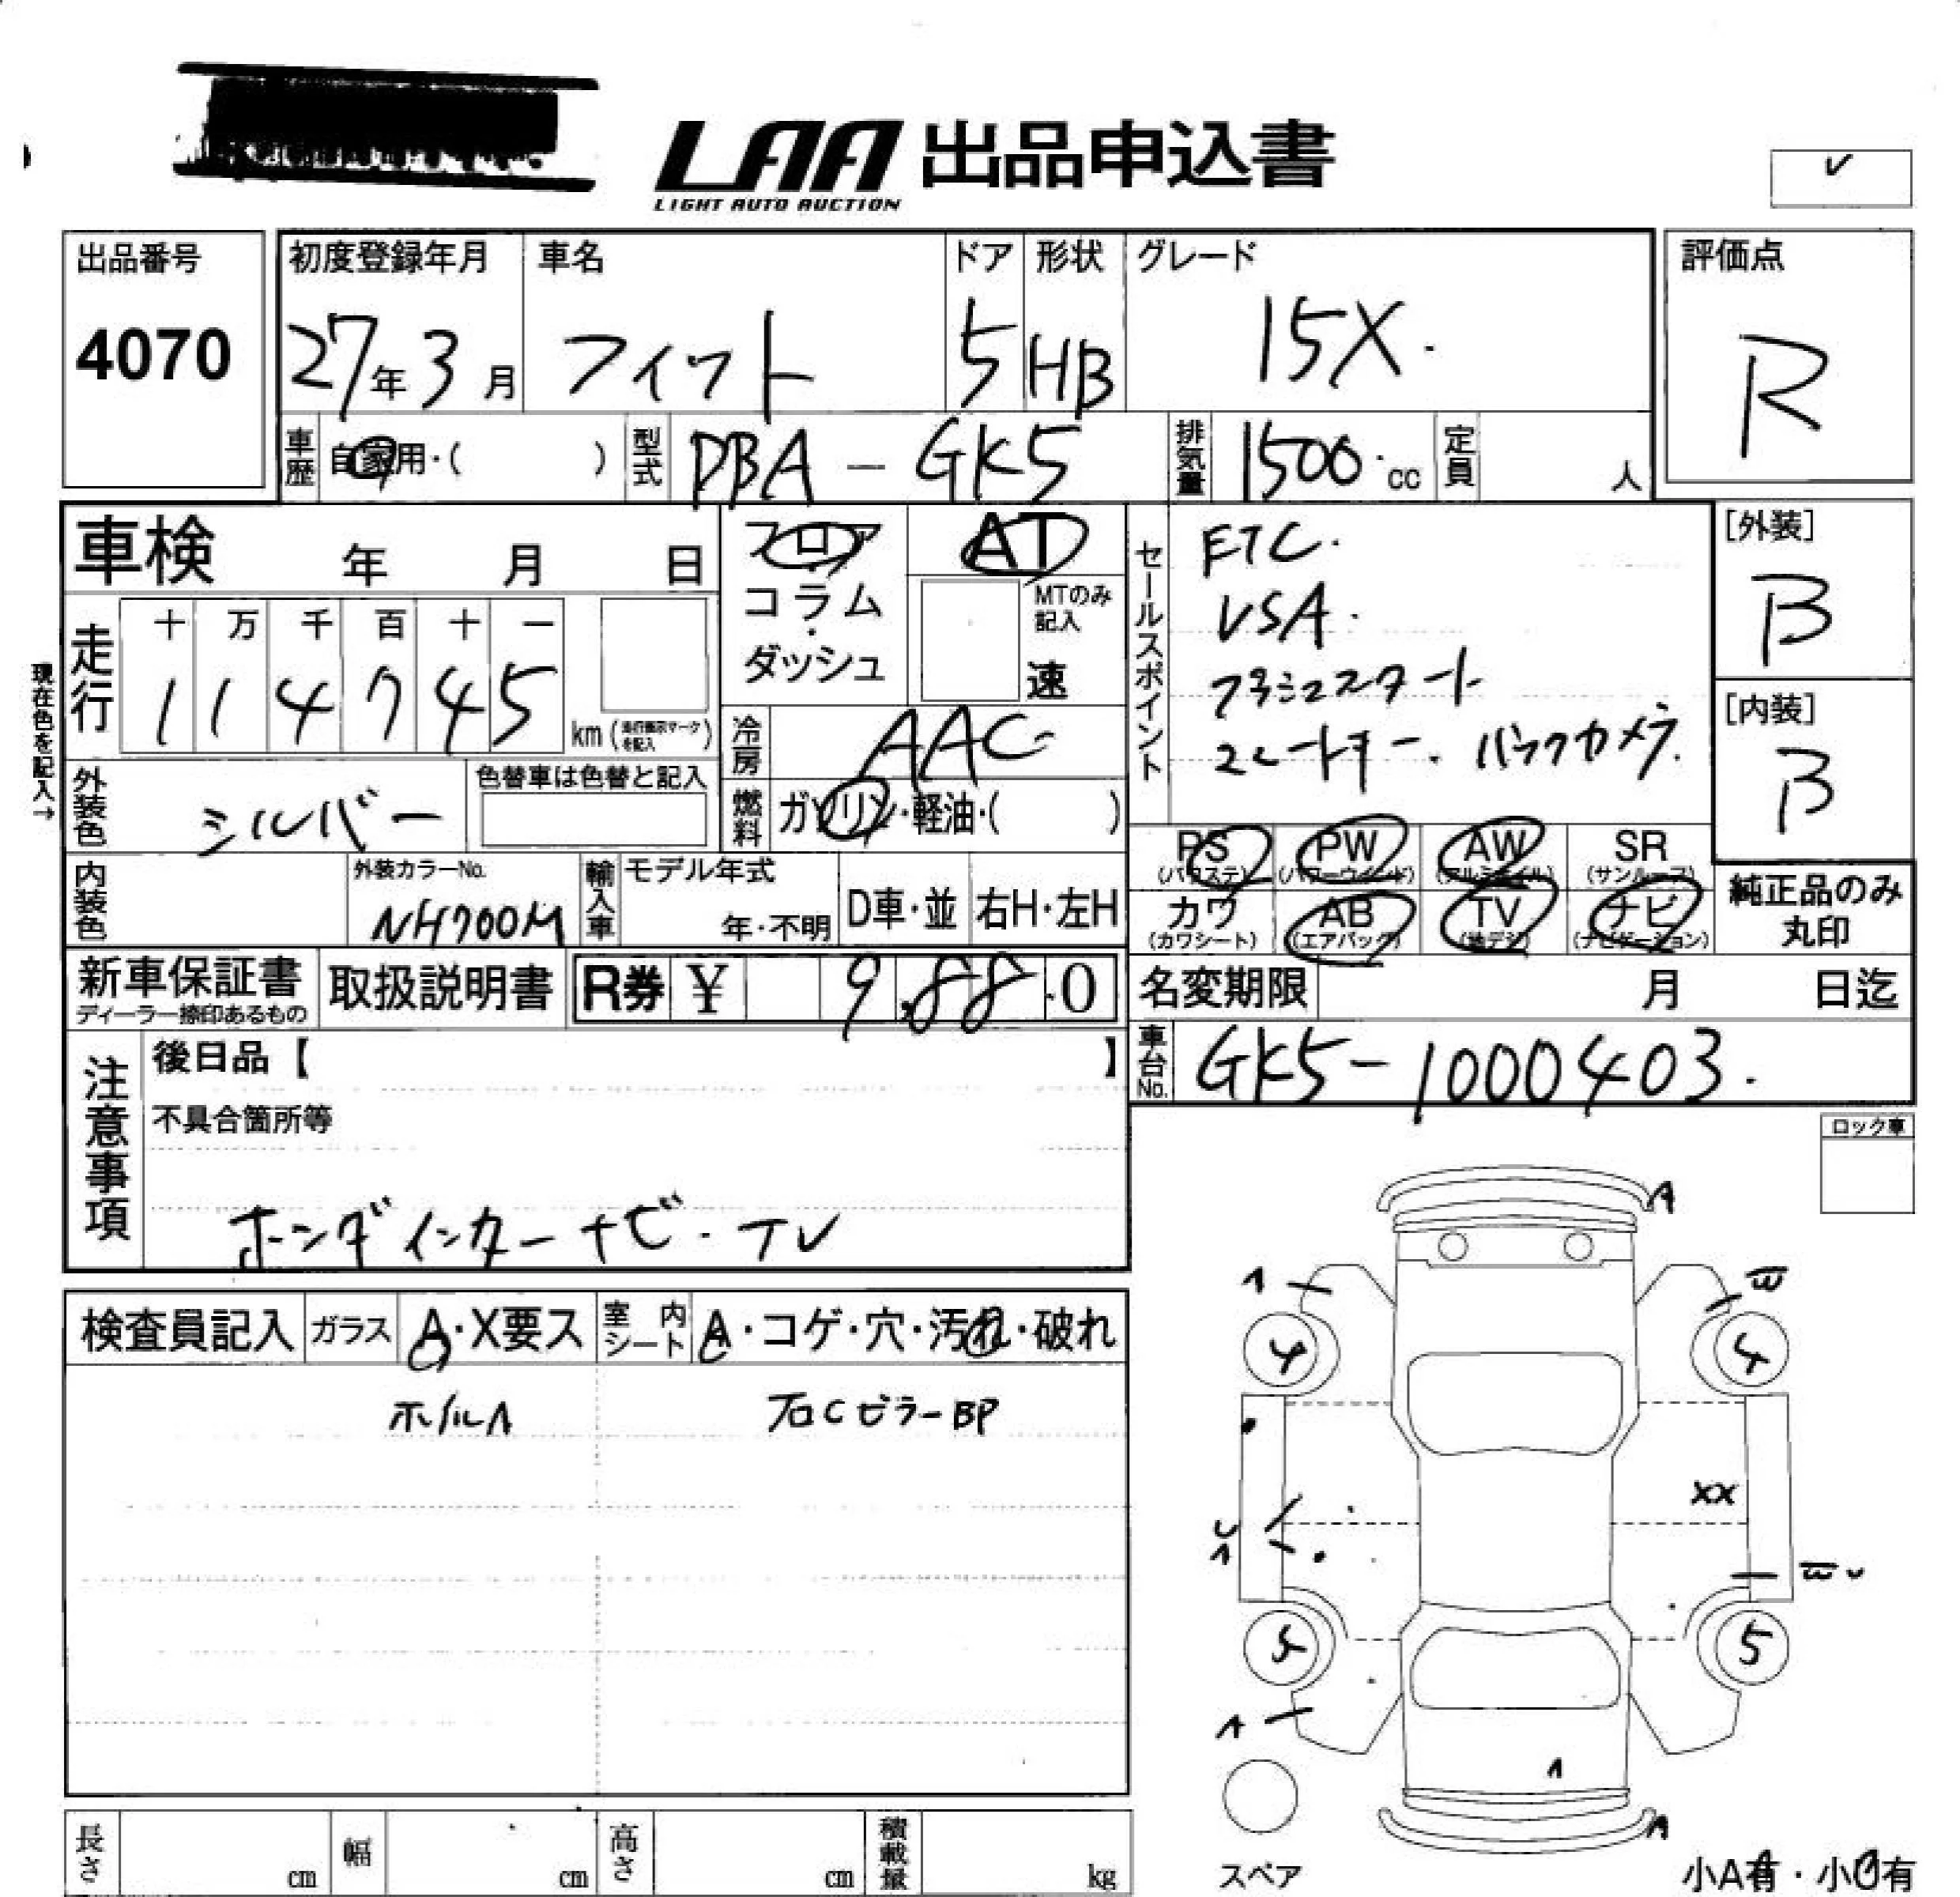 LAA 出品申込書
LIGHT AUTO AUCTION
出品番号
4070
初度登録年月
27年3月
車名
フィット
ドア
5
形状
HB
グレード
15X.
評価点
R
車歴
自家用・( )
型式
DBA-GK5
排気量
1500.cc
定員
人
車検 年 月 日
フロア
・
コラム
・
ダッシュ
AT
MTのみ
記入
速
セールスポイント
ETC.
VSA.
プッシュスタート
スマートキー. バックカメラ.
[外装]
B
[内装]
B
現在色を記入→
走行
十 万 千 百 十 一
1 1 4 7 4 5
km (走行距離表示マークを記入)
冷房
AAC
外装色
シルバー
色替車は色替と記入
燃料
ガソリン・軽油・( )
内装色
外装カラーNo.
NH700M
輸入車
モデル年式
年・不明
D車・並
右H・左H
PS
(パワステ)
PW
(パワーウインド)
AW
(アルミホイル)
SR
(サンルーフ)
カワ
(カワシート)
AB
(エアバック)
TV
(地デジ)
ナビ
(ナビゲーション)
純正品のみ
丸印
新車保証書
ディーラー捺印あるもの
取扱説明書
R券 ¥ 9,88.0
名変期限 月 日迄
車台No.
GK5-1000403.
注意事項
後日品【 】
不具合箇所等
ホンダインターナビ・TV
ロック車
検査員記入
ガラス
A・X要ス
室内シート
A・コゲ・穴・汚れ・破れ
ホイルA
右CピラーBP
A
A
W
4
4
XX
U
A
W U
5
5
A
A
A
スペア
小A有・小U有
長さ cm
幅 cm
高さ cm
積載量 kg